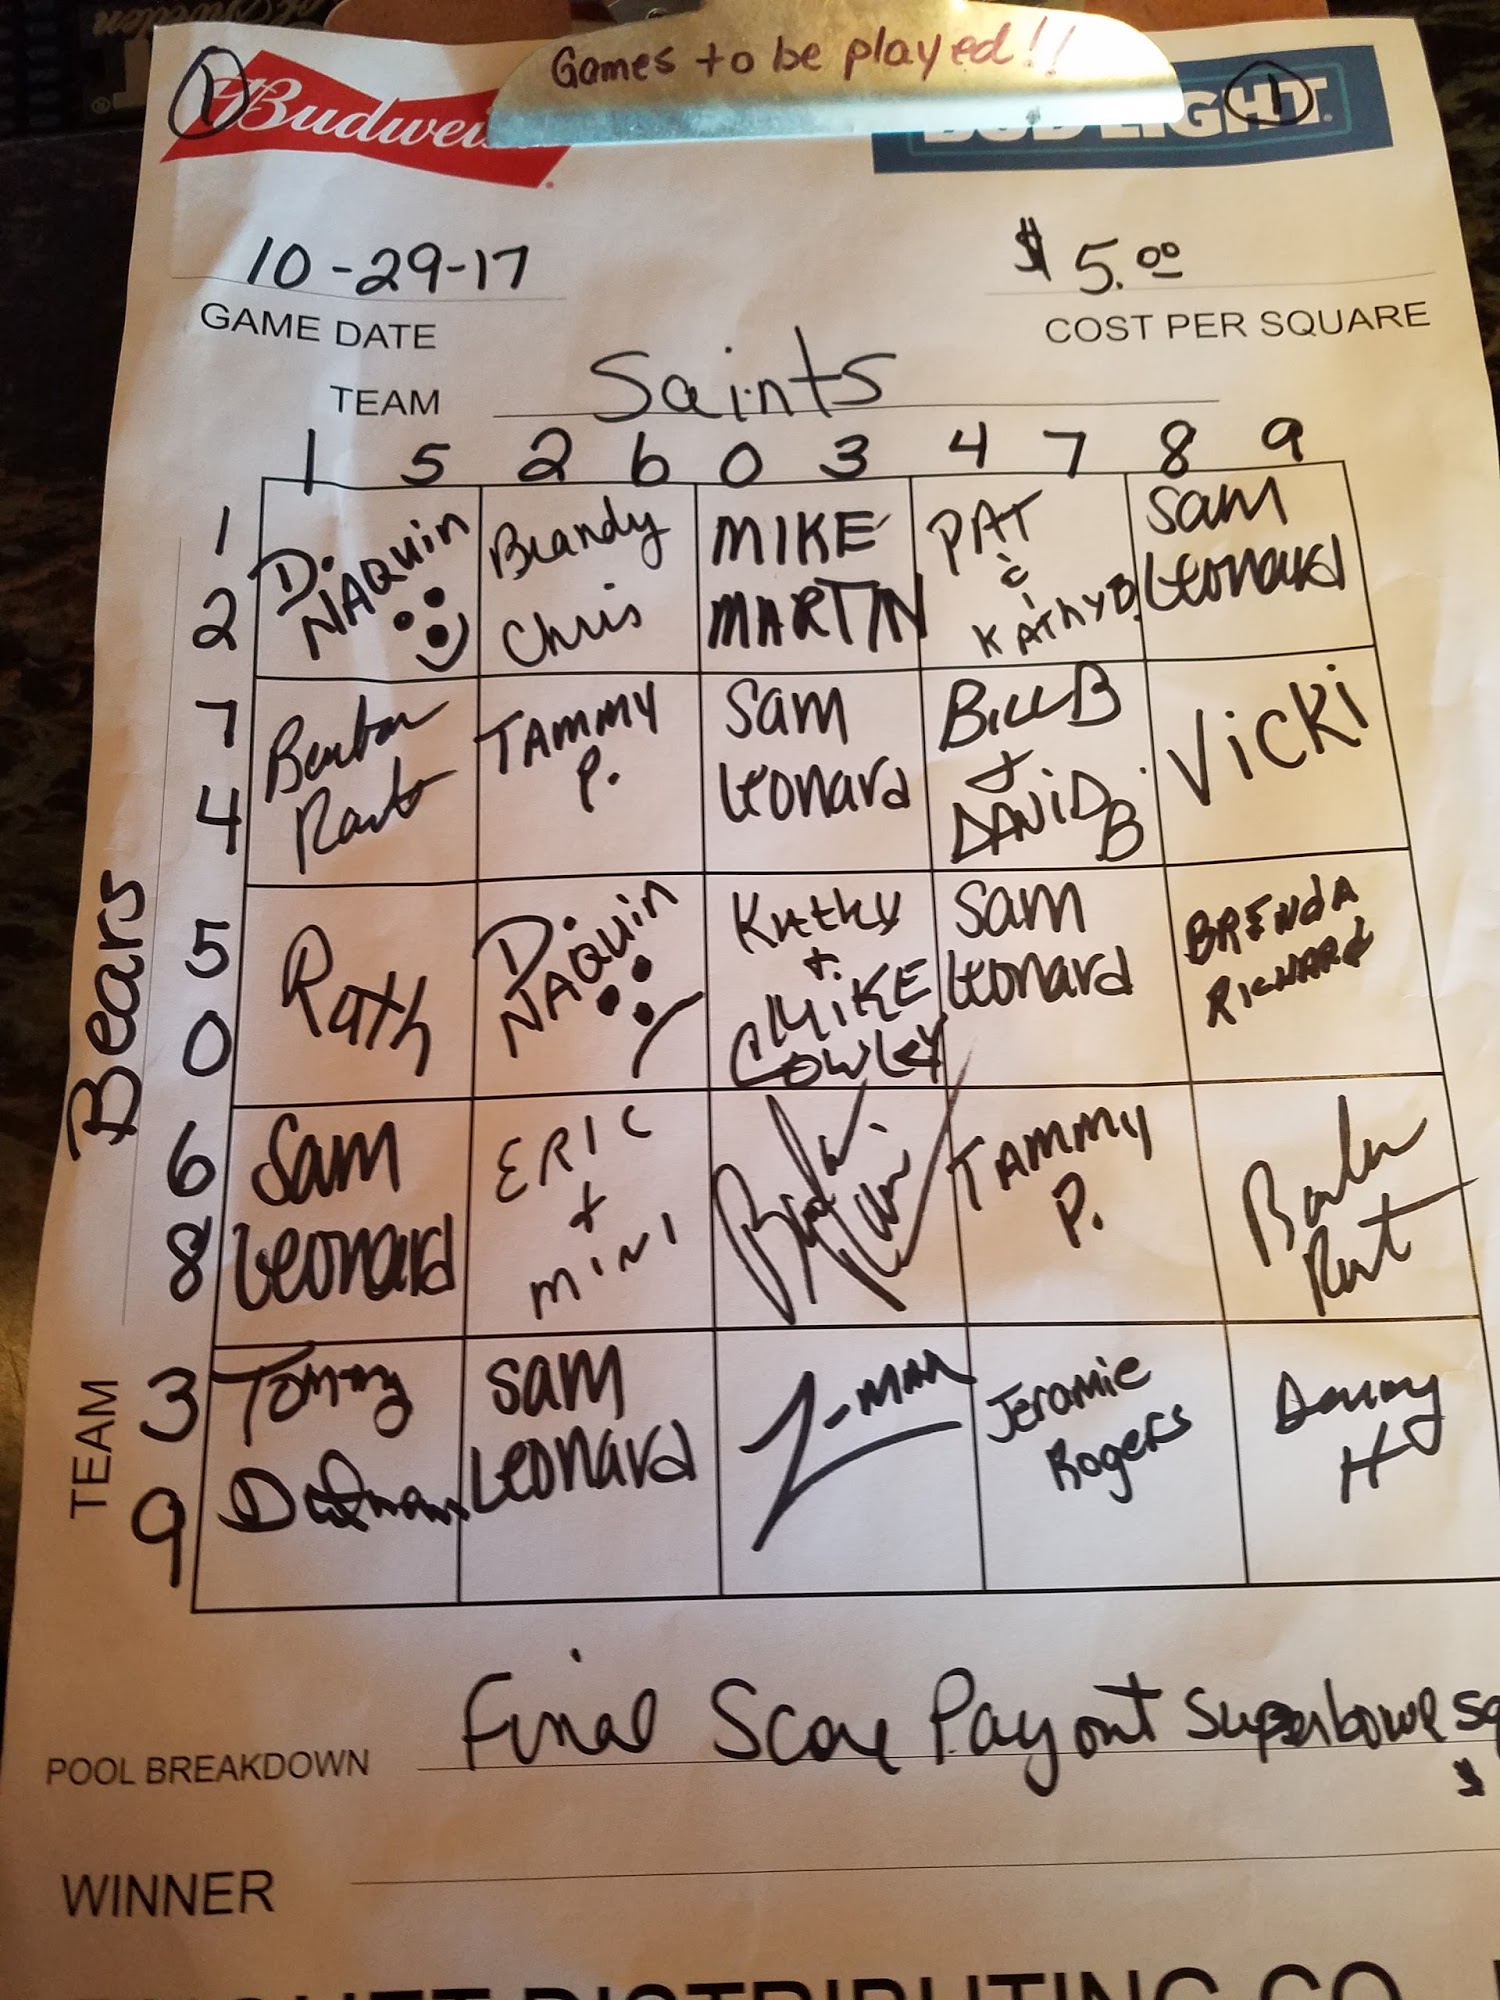 Games to be played!!
1 Budwei
BUD LIGHT. 1
10-29-17
$ 5.00
GAME DATE
COST PER SQUARE
TEAM Saints
1 5 2 6 0 3 4 7 8 9
1
2
D. NAQUIN
Brandy
Chris
MIKE
MARTIN
PAT
&
KATHY B.
Sam
Leonard
7
4
TAMMY
P.
Sam
Leonard
BILL B
+
DAVID B
Vicki
Bears
5
0
Ruth
D. NAQUIN
Kathy
+
MIKE
COWLEY
Sam
Leonard
BRENDA
RICHARD
6
8
Sam
Leonard
ERIC
+
MINI
TAMMY
P.
TEAM
3
9
Tommy
Sam
Leonard
Z-MAN
Jeramie
Rogers
Danny
H
POOL BREAKDOWN Final Score Pay out Superbowl Sq
$
WINNER
DISTRIBUTING CO